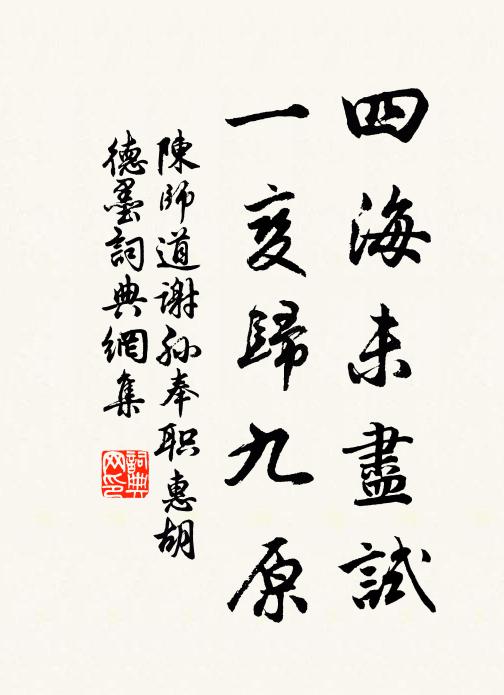 四海未盡試
一变歸九原
陳師道謝孙奉职惠胡
德墨詞典網集
詞典
网印